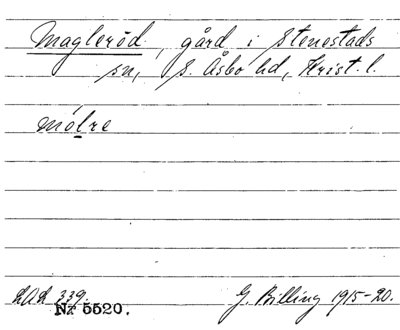 Magleröd, gård i Stenestads
sn, S. Åsbo hd, Krist. l.
mólre
LAL 339.
Nr 5520.
G. Billing 1915-20.